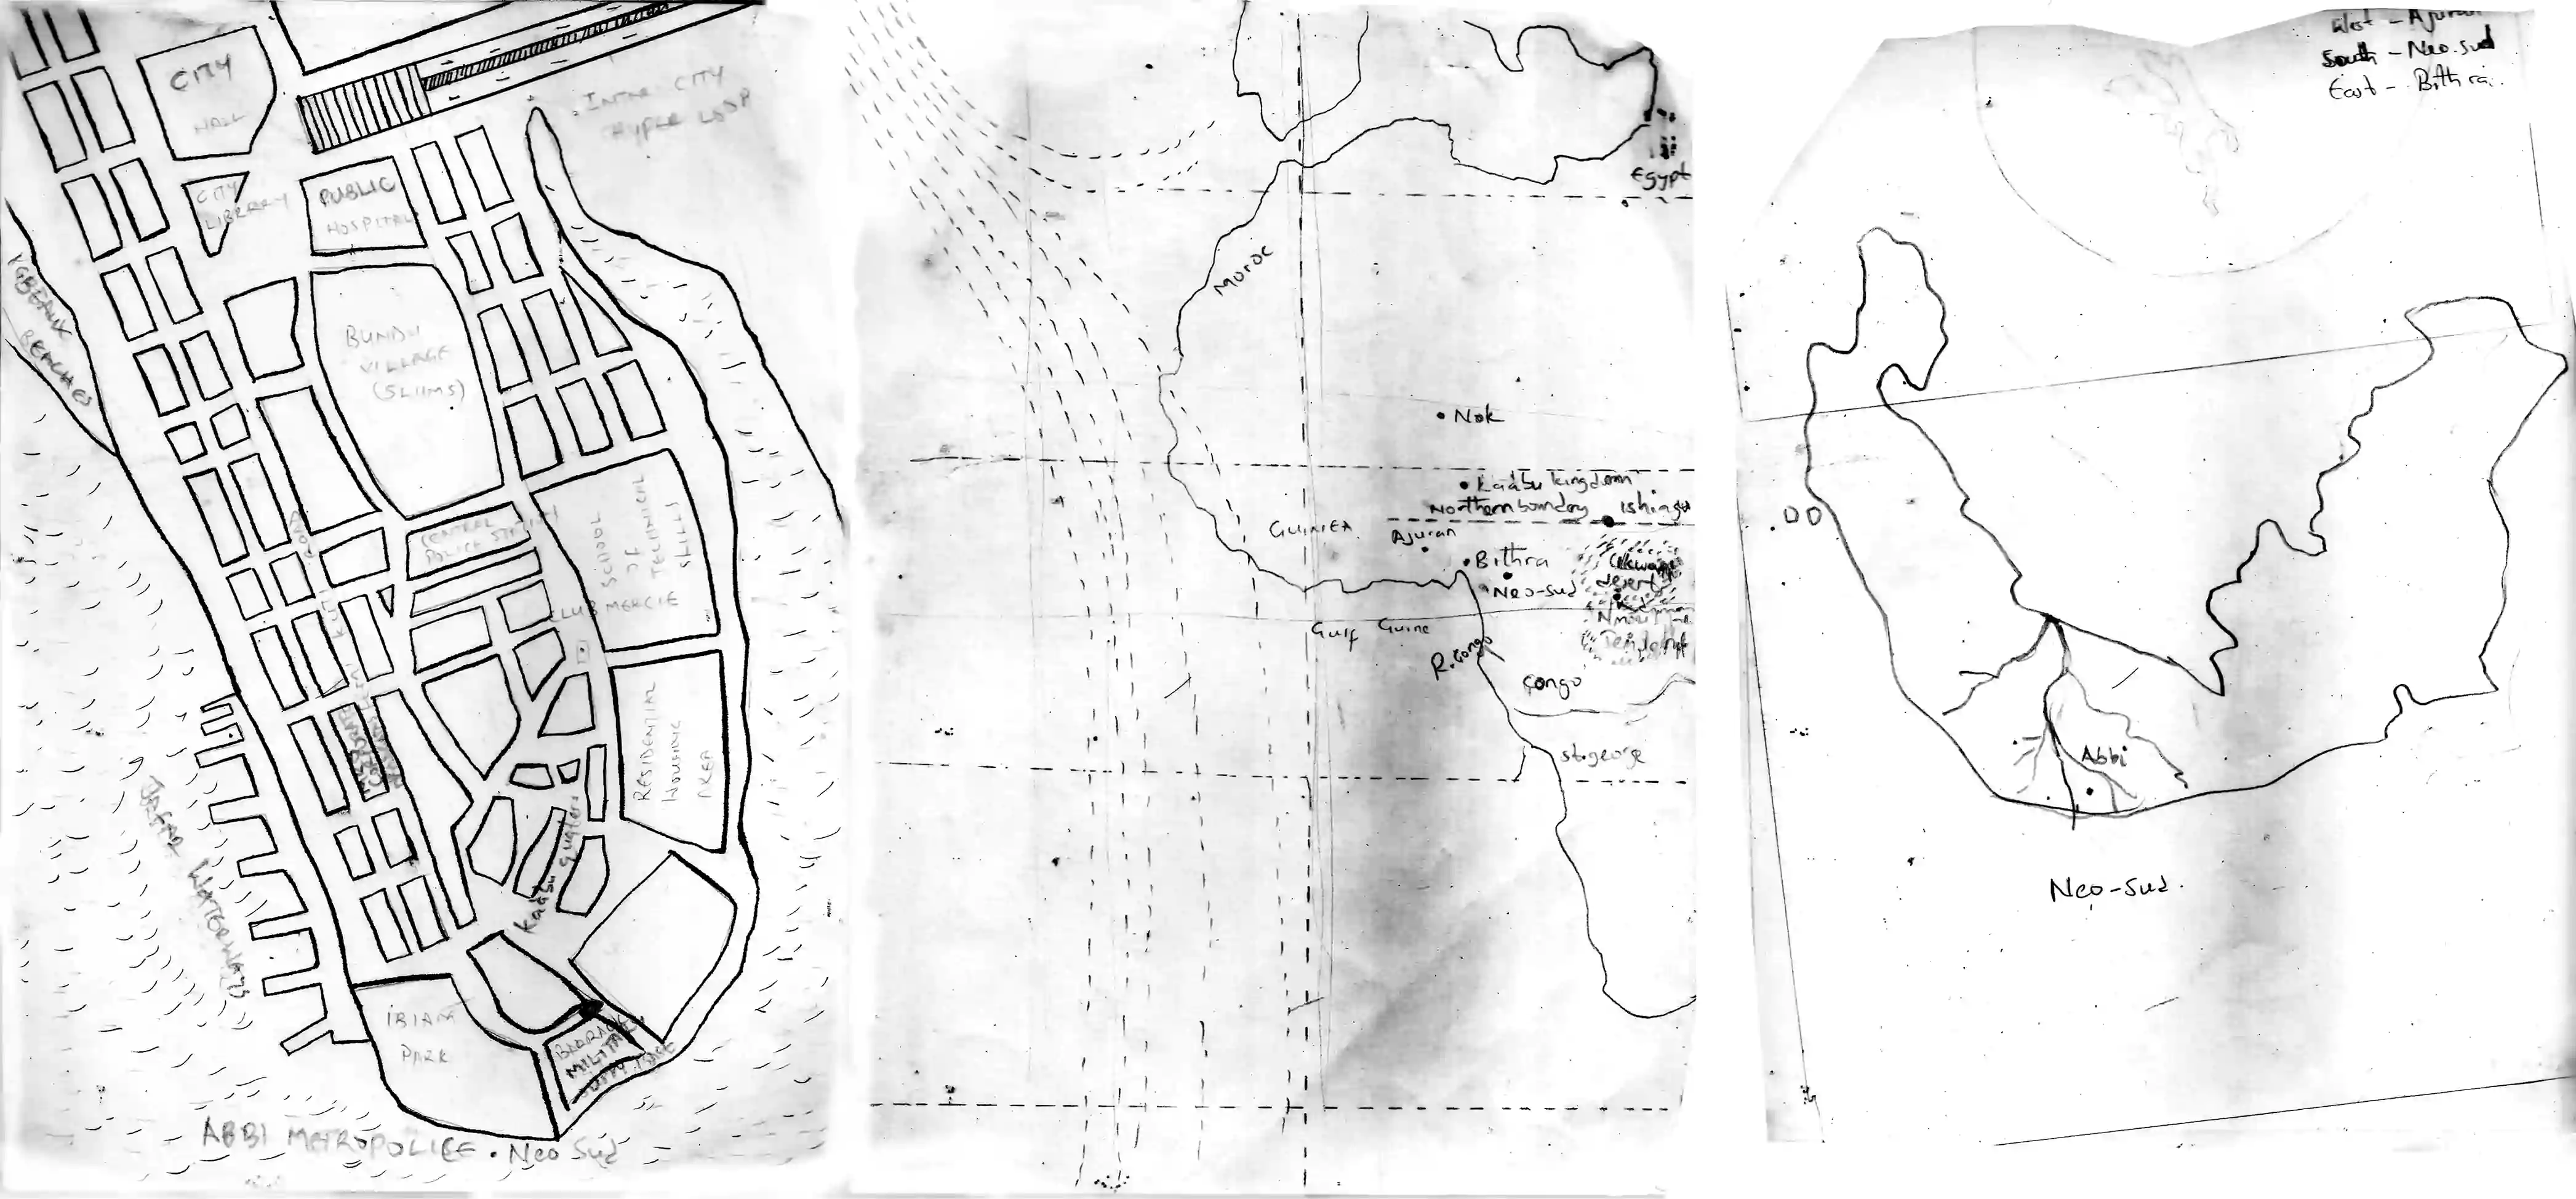 CITY
HALL
INTRA CITY
HYPER LOOP
CITY
LIBRARY
PUBLIC
HOSPITAL
BEACHES
BUNDU
VILLAGE
(SLUMS)
CENTRAL
POLICE
SCHOOL
OF
TECHNICAL
SKILLS
CLUB MERCIE
RESIDENTIAL
HOUSING
AREA
WATERWAYS
IBIAM
PARK
MILITARY
ABBI METROPOLICE . Neo Sud
Egypt
Moroc
Nok
Kaabu kingdom
Northern boundary
GUINEA
Ajuran
Bithra
desert
Neo-sud
Gulf Guine
R. Congo
Congo
st.george
West - Ajuran
South - Neo.sud
East - Bithra.
Abbi
Neo-sud.